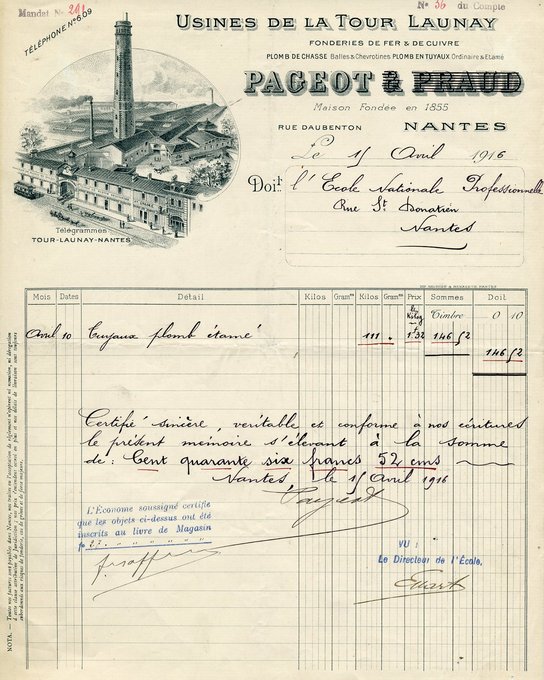 Mandat No 291
No 36 du Compte
TÉLÉPHONE No 6.09
USINES DE LA TOUR LAUNAY
FONDERIES DE FER & DE CUIVRE
PLOMB DE CHASSE Balles & Chevrotines PLOMB EN TUYAUX Ordinaire & Étamé
PAGEOT & PRAUD
Maison Fondée en 1855
RUE DAUBENTON NANTES
Télégrammes
TOUR-LAUNAY-NANTES
Le 15 Avril 1916
Doit l'Ecole Nationale Professionnelle
Rue St Donatien
Nantes
Mois Dates Détail Kilos Gram Kilos Gram Prix Sommes Doit
le Kilog Timbre 0 10
Avril 10 Tuyaux plomb étamé 111 " 1f32 146 52
146 52
Certifié sincère, veritable et conforme à nos écritures
le présent mémoire s'élevant à la somme
de: Cent quarante six francs 52 cms
Nantes, le 15 Avril 1916
Pageot
L'Économe soussigné certifie
que les objets ci-dessus ont été
inscrits au livre de Magasin
fo 27
VU :
Le Directeur de l'École,
NOTA.